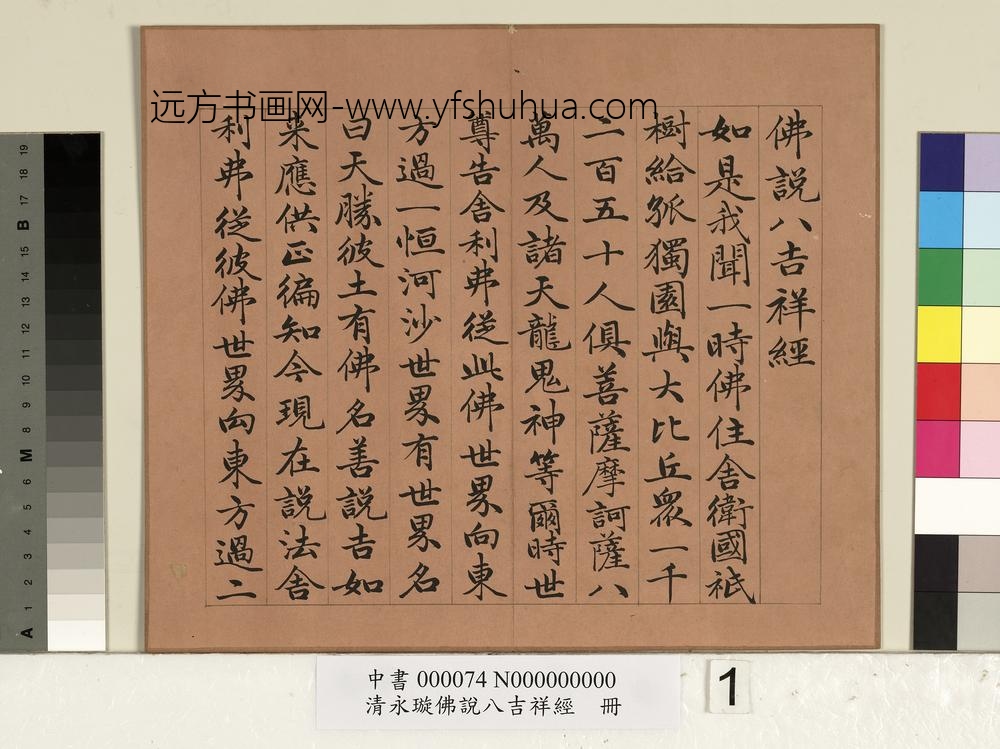 远方书画网-www.yfshuhua.com
佛說八吉祥經
如是我聞一時佛住舍衛國祇
樹給孤獨園與大比丘眾一千
二百五十人俱菩薩摩訶薩八
萬人及諸天龍鬼神等爾時世
尊告舍利弗從此佛世界向東
方過一恒河沙世界有世界名
曰天勝彼土有佛名善說吉如
来應供正徧知今現在說法舍
利弗從彼佛世界向東方過二
中書 000074 N000000000
清永璇佛說八吉祥經 冊
1
A 1 2 3 4 5 6 M 8 9 10 11 12 13 14 15 B 17 18 19